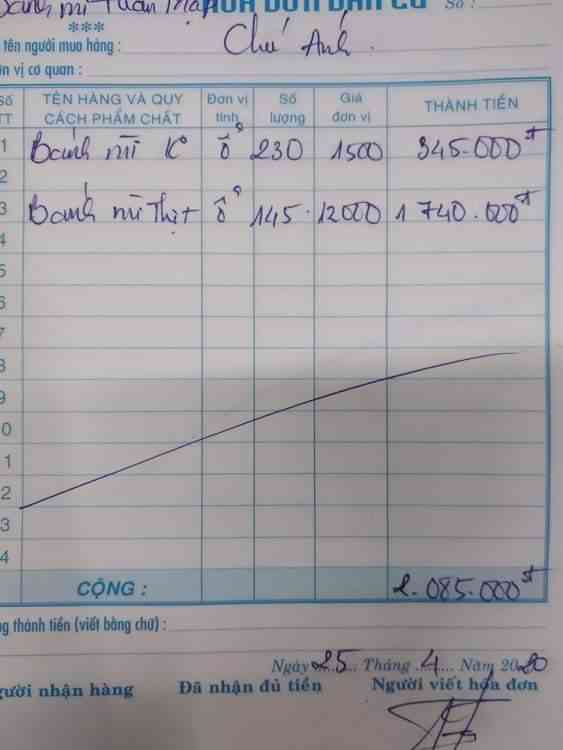 Bánh mì Tuấn Mập HÓA ĐƠN BÁN LẺ Số :
***
tên người mua hàng : Chú Ánh
ơn vị cơ quan :
Số TT TÊN HÀNG VÀ QUY CÁCH PHẨM CHẤT Đơn vị tính Số lượng Giá đơn vị THÀNH TIỀN
1 Bánh mì Ko ổ 230 1500 345.000đ
2
3 Bánh mì Thịt ổ 145. 12000 1 740.000đ
4
5
6
7
8
9
0
1
2
3
4
CỘNG : 2.085.000đ
ng thành tiền (viết bằng chữ) :
Ngày 25 Tháng 4 Năm 2020
gười nhận hàng Đã nhận đủ tiền Người viết hóa đơn